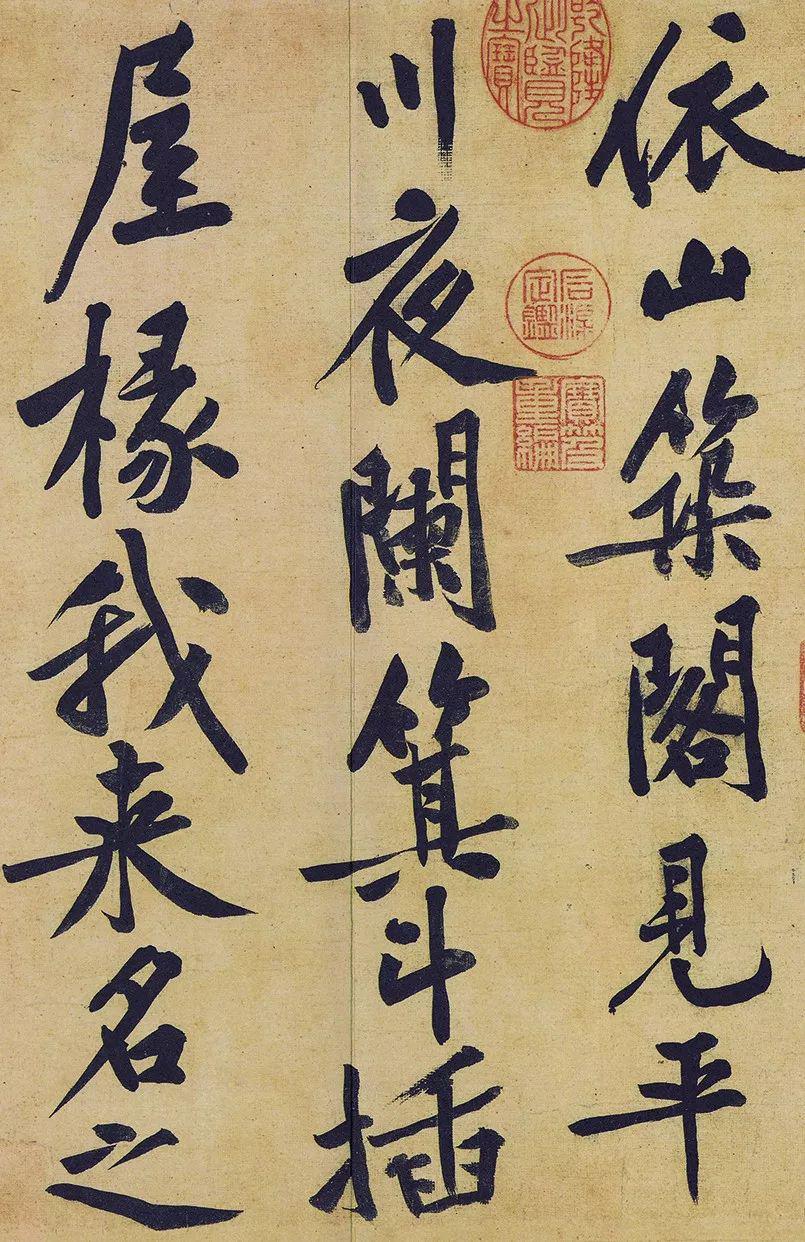 依山築閣見平
乾隆御覽之寶
石渠定鑑
寶笈重編
川夜闌箕斗插
屋椽我来名之